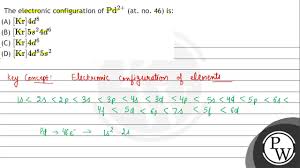 The electronic configuration of Pd²⁺ (at. no. 46) is:
(A) [Kr]4d⁸
(B) [Kr]5s²4d⁶
(C) [Kr]4d⁶
(D) [Kr]4d⁸5s²
Key Concept: Electronic configuration of elements
1s < 2s < 2p < 3s < 3p < 4s < 3d < 4p < 5s < 4d < 5p < 6s <
4f < 5d < 6p < 7s < 5f < 6d
Pd → 46e⁻ → 1s² 2s
PW